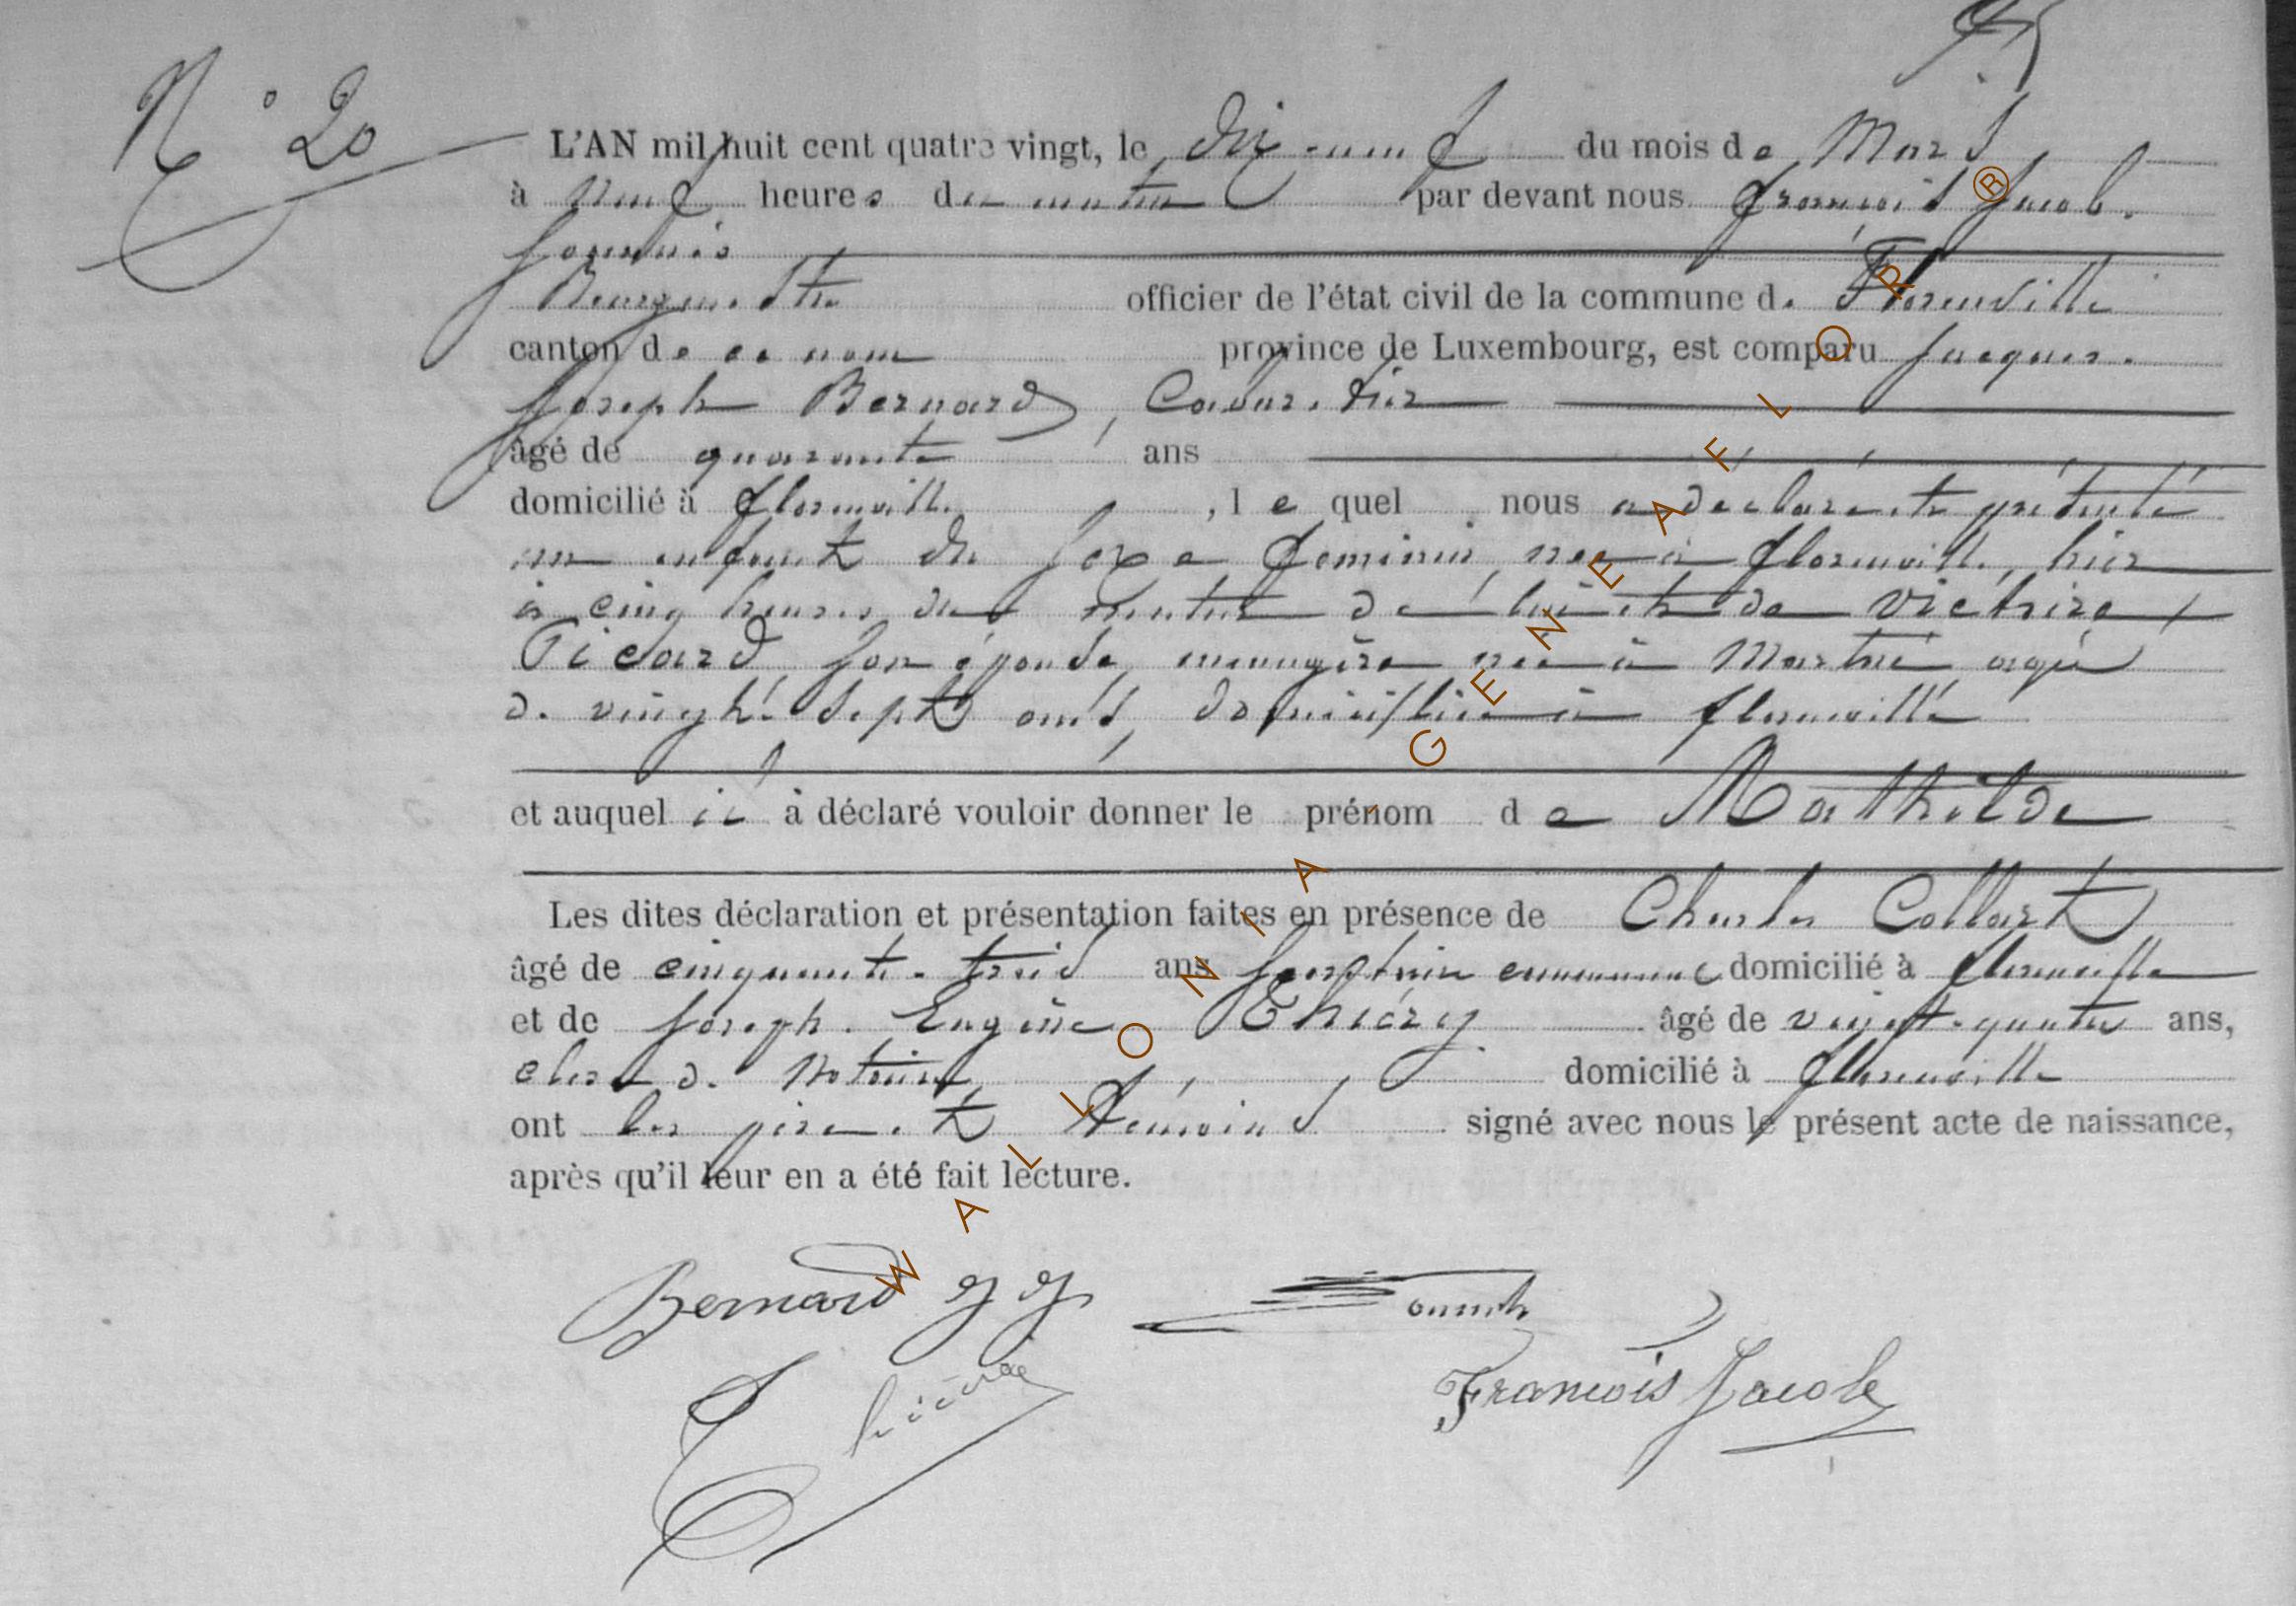 N° 20
L'AN mil huit cent quatre vingt, le dix-neuf du mois de Mars
à neuf heures du matin par devant nous françois Jacob.
Bourgmestre officier de l'état civil de la commune de Florenville
canton de ce nom province de Luxembourg, est comparu Jacques.
Joseph Bernard, Cabaretier
âgé de quarante ans
domicilié à florenville, le quel nous a déclaré et présenté
un enfant du sexe féminin, née à florenville, hier
à cinq heures du matin de lui et de Victoire
Picard, son épouse, menagère née à Martué agée
de vingt-sept ans, domiciliée à florenville
et auquel il à déclaré vouloir donner le prénom de Mathilde
Les dites déclaration et présentation faites en présence de Charles Collart
âgé de cinquante-trois ans domicilié à florenville
et de Joseph-Eugène Thiéry âgé de vingt-quatre ans,
clerc de Notaire domicilié à florenville
ont les père et témoins signé avec nous le présent acte de naissance,
après qu'il leur en a été fait lecture.
Bernard JJ
François Jacob
WALLONIA GENEAFFLOR ®